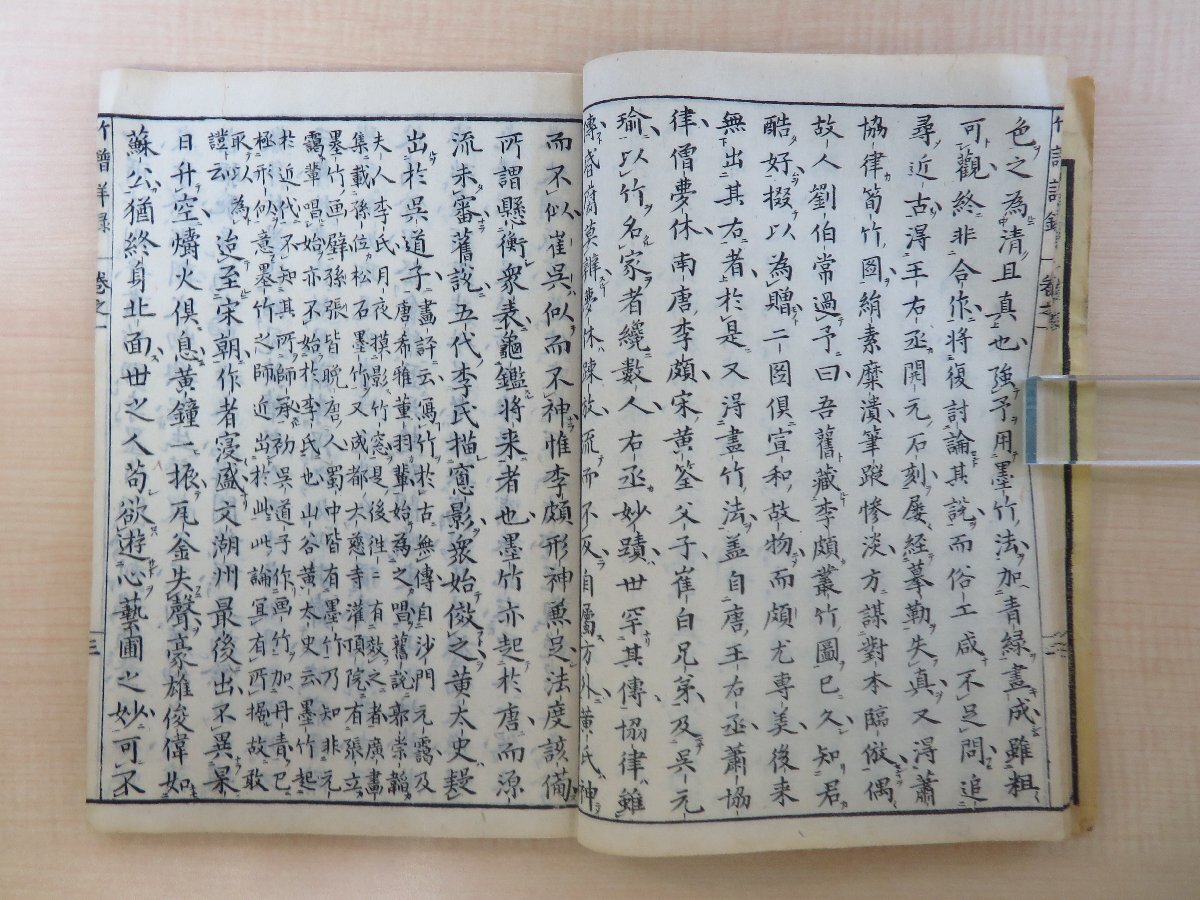 色之為清且真也強予用墨竹法加青緑畫成雖粗
可觀終非合作将復討論其説而俗工咸不足問追
尋近古得王右丞開元石刻屡経摹勒失真又得蕭
協律筍竹圖絹素糜潰筆蹤惨淡方謀對本臨倣偶
故人劉伯常過予曰吾舊藏李頗叢竹圖已久知君
酷好掇以為贈二圖俱宣和故物而頗尤専美後来
無出其右者於是又得盡竹法盖自唐王右丞蕭協
律僧夢休南唐李頗宋黄筌父子崔白兄弟及呉元
瑜以竹名家者纔數人右丞妙蹟世罕其傳協律雖
傳昏腐莫辨夢休疎放流而不反自屬方外黄氏神
而不似崔呉似而不神惟李頗形神兼足法度該備
所謂懸衡衆表龜鑑将来者也墨竹亦起於唐而源
流未審舊説五代李氏描窓影衆始倣之黄太史疑
出於呉道子
畫評云寫竹於古無傳自沙門元靄及
唐希雅董羽輩始為之唱舊説郭崇韜
夫人李氏月夜摸影竹窓是後往々有效之者廣畫
集載孫位松石墨竹又成都大慈寺灌頂院有張立
墨竹画壁孫張皆晩唐人蜀中皆有墨竹乃知非元
靄輩唱始亦不始於李氏也山谷黄太史云墨竹起
於近代不知其所師承初呉道子作画竹加丹青已
極形似意墨竹之師近出於此此論冝有所據故敢
取以為
證云
迨至宋朝作者寖盛文湖州最後出不異杲
日升空爝火倶息黄鐘一振瓦釜失聲豪雄俊偉如
蘇公猶終身北面世之人苟欲游心藝圃之妙可不
竹譜詳録 巻之一
三